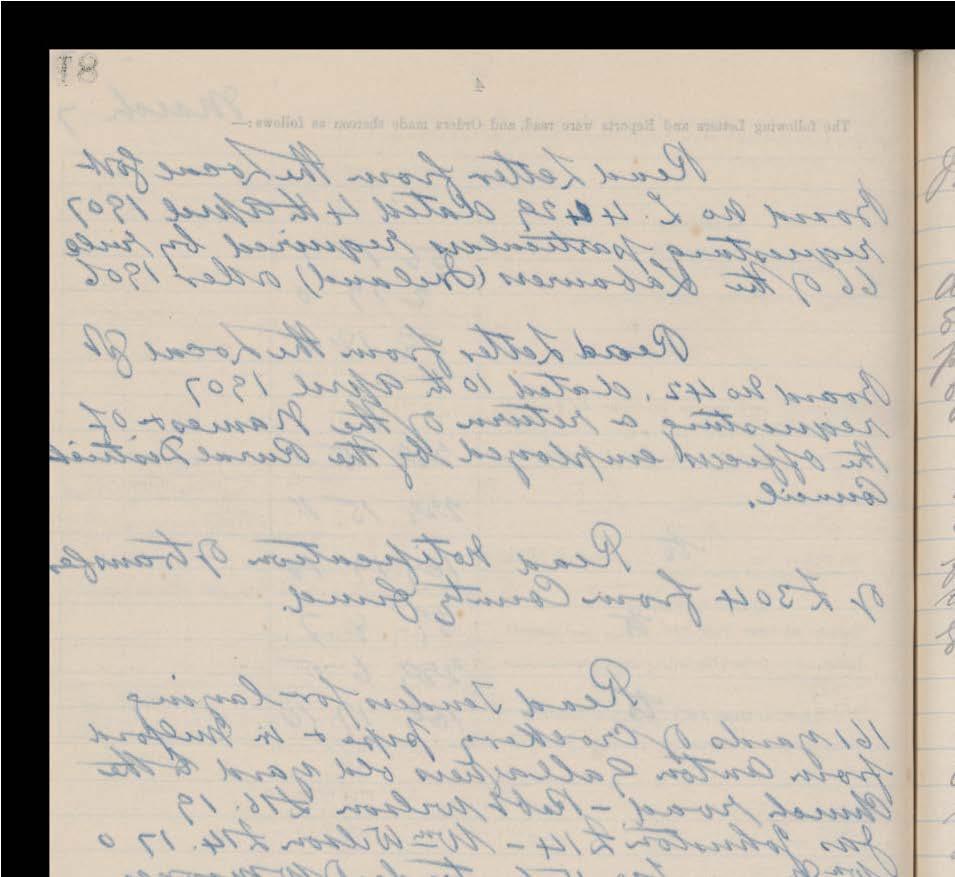 81
4
The following Letters and Reports were read, and Orders made thereon as follows:—
March 7
Read Letter from the Local Govt
Board No L. 4429 dated 4th April 1907
requesting particulars required by rule
66 of the Labourers (Ireland) order 1906
Read Letter from the Local Gt
Board No 42. dated 10th April 1907
requesting a return of the Names & of
the officers employed by the Rural District
Council.
Read Notification of transfer
of £304 from County Fund.
Read Tenders for laying
161 yards of Crockery pipe & in Milford
from Anton Gallaghers old yard to the
Church road — Robt Wilson £16.19
Jas Johnston £14 — Wm Wilson £14.17.0